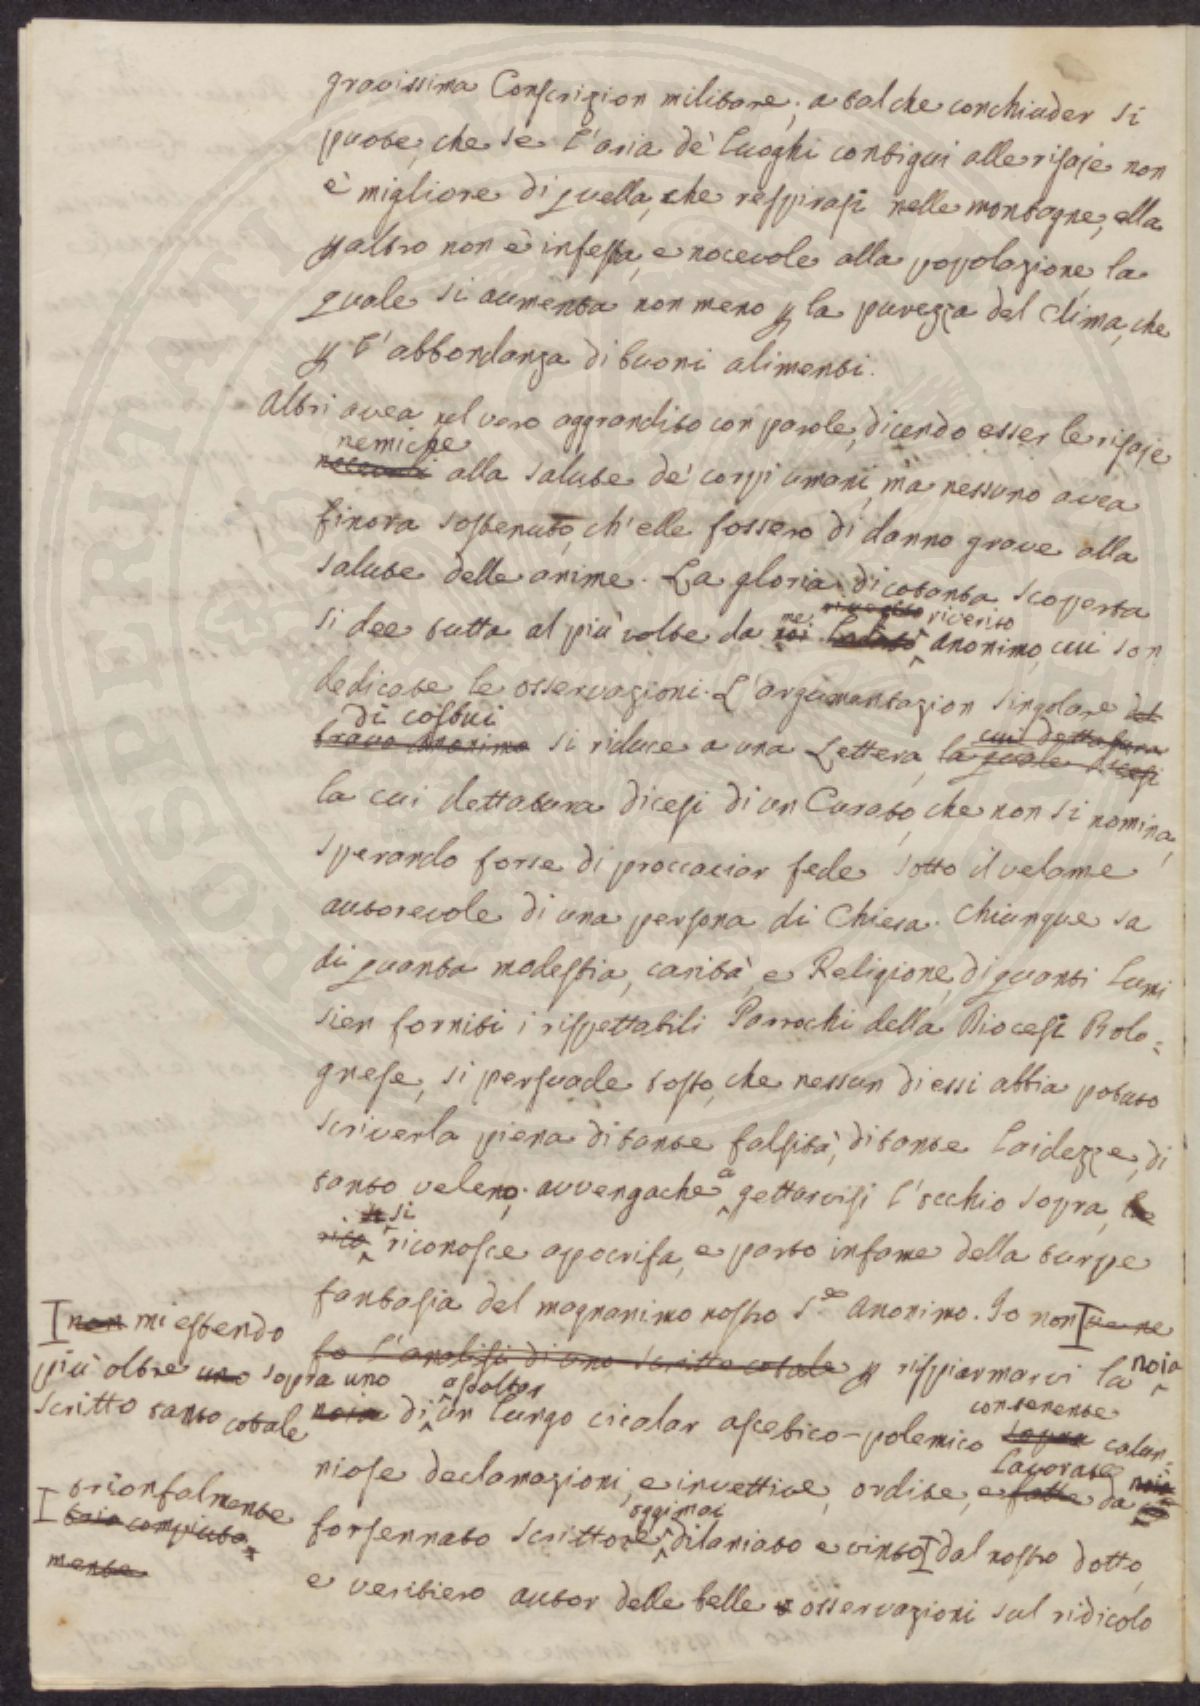 gravissima Conscrizion militare; a tal che conchiuder si
puote, che se l'aria de' luoghi contigui alle risaje non
è migliore di quella, che respirasi nelle montagne, ella
p altro non è infesta, e nocevole alla popolazione, la
quale si aumenta non meno p la purezza del clima, che
p l'abbondanza di buoni alimenti.
Altri avea nel vero aggrandito con parole, dicendo esser le risaje
nemiche
nocevoli alla salute de' corpi umani, ma nessuno avea
finora sostenuto, ch'elle fossero di danno grave alla
salute delle anime. La gloria di cotanta scoperta
me riverito
si dee tutta al più volte da noi lodato anonimo, cui son
dedicate le osservazioni. L'argumentazion singolare del
di costui cui dettatura
bravo Anonimo si riduce a una Lettera, la quale dicesi
la cui dettatura dicesi di un Curato, che non si nomina,
sperando forse di proccaciar fede sotto il velame
autorevole di una persona di Chiesa. Chiunque sa
di quanta modestia, carità, e Religione, di quanti lumi
sien forniti i rispettabili Parrochi della Diocesi Bolo=
gnese, si persuade tosto, che nessun di essi abbia potuto
scriverla piena di tante falsità, di tante laidezze, di
tanto veleno; avvengache a gettarvisi l'occhio sopra,
si
rico riconosce apocrifa, e parto infame della turpe
fantasia del magnanimo nostro Sr Anonimo. Io non
non mi estendo
fo l'analisi di uno scritto cotale p rispiarmarvi la noia
più oltre uno sopra uno
ascoltar
scritto tanto cotale
noia di un lungo cicalar ascetico-polemico
contenente
sopra calun=
niose declamazioni, e invettive, ordite, e fatte da
lavorate
trionfalmente
oggimai
forsennato scrittore dilaniato e vinto dal nostro dotto,
mente
e veritiero autor delle belle osservazioni sul ridicolo